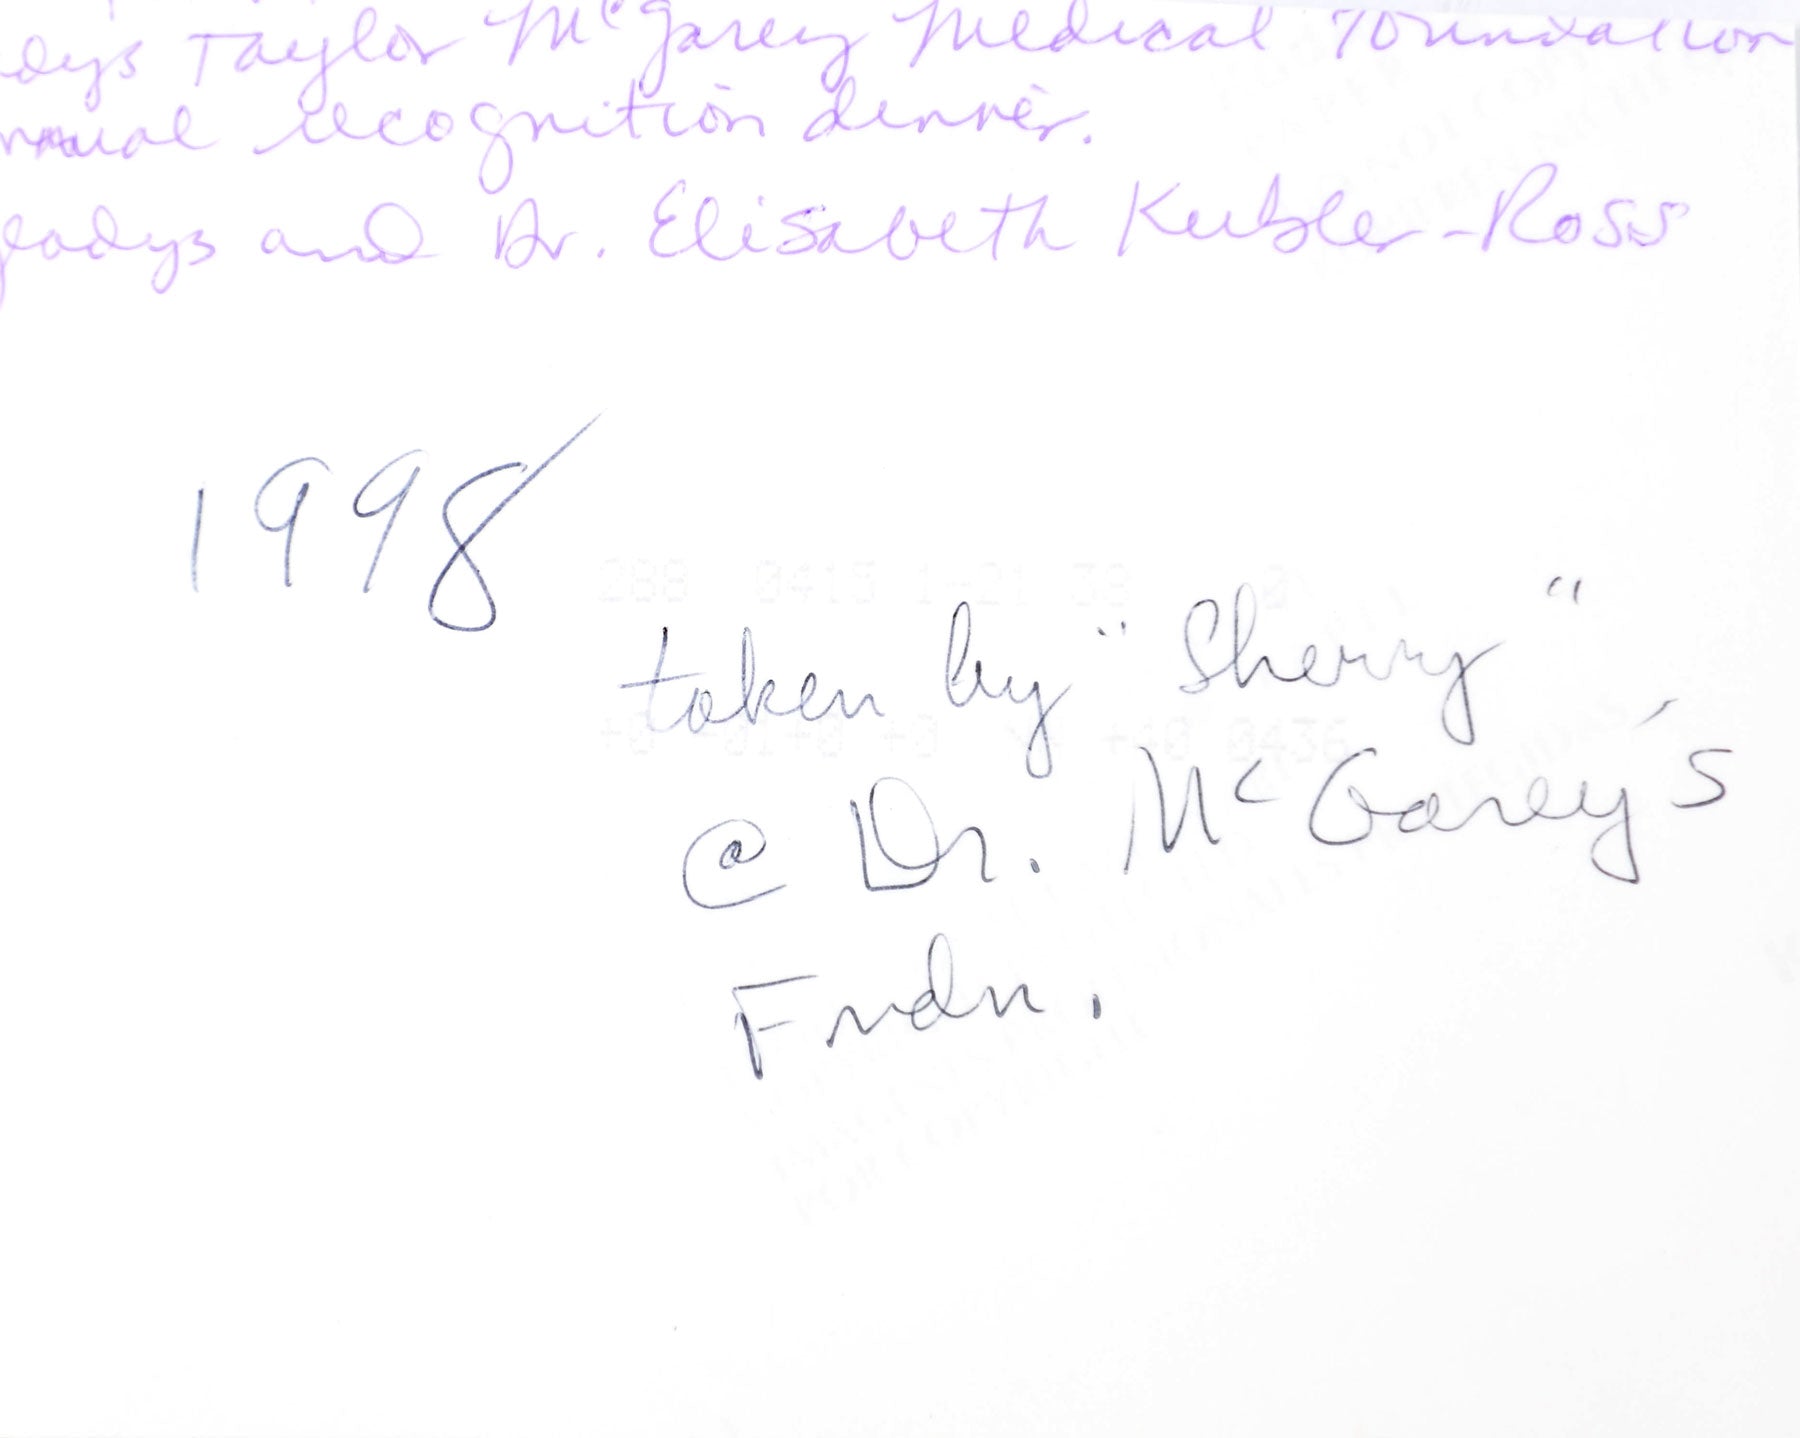 dys Taylor McGarey Medical Foundation
nnual recognition dinner.
ladys and Dr. Elisabeth Kubler-Ross
1998
288 0415 1-21 38 0
taken by "Sherry"
@ Dr. McGarey's
Fndn.